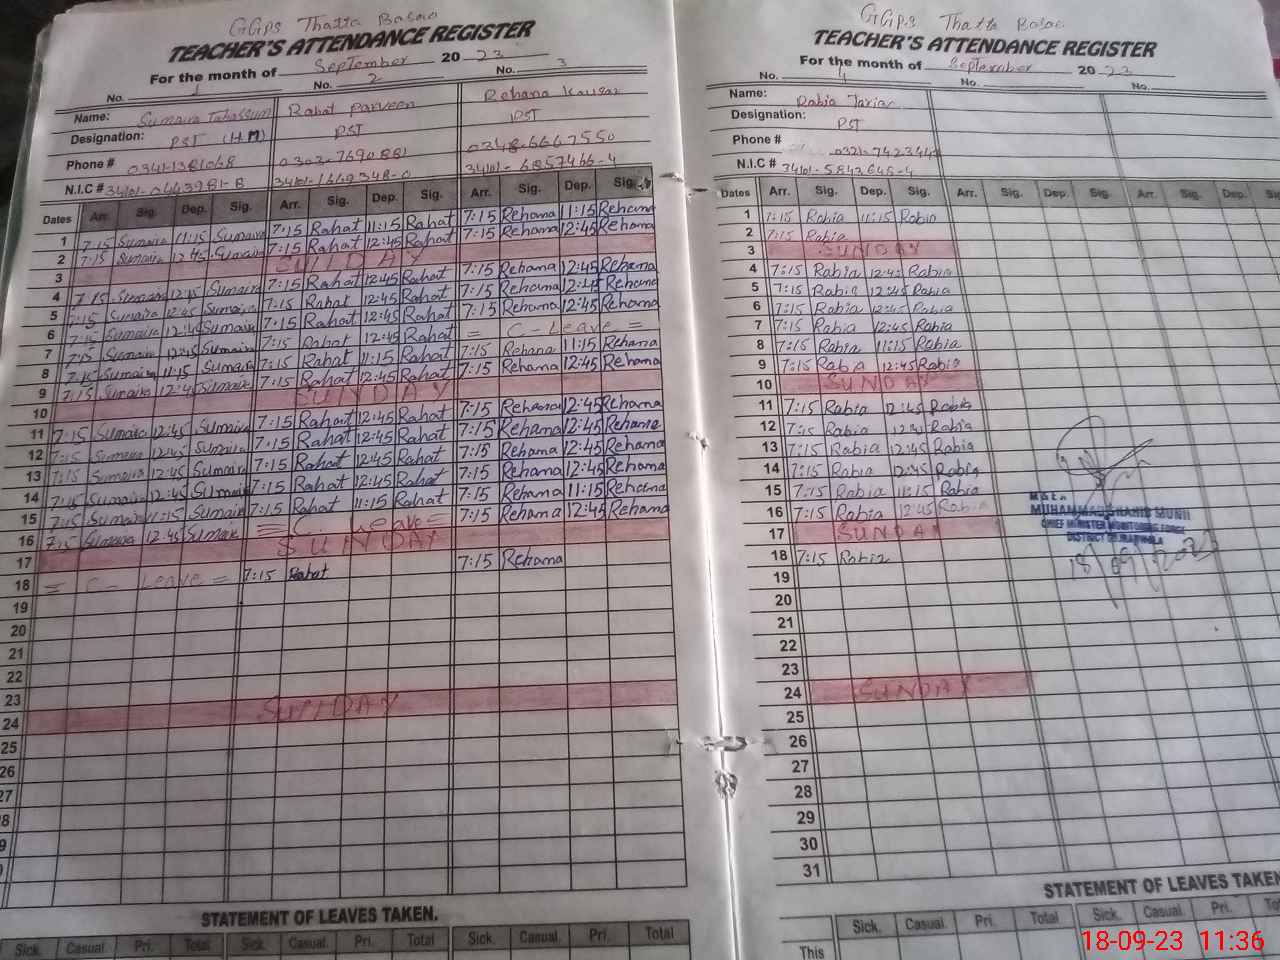 GGPS Thatta Basao
TEACHER'S ATTENDANCE REGISTER
For the month of September 2023
No. 1 No. 2 No. 3
Name: Sumaira Tabassum Rahat Parveen Rehana Kausar
Designation: PST (HM) PST PST
Phone # 0303-7690881 0348-6667550
N.I.C #
Dates Arr. Sig. Dep. Sig. Arr. Sig. Dep. Sig. Arr. Sig. Dep. Sig.
1 7:15 Sumaira 11:15 Sumaira 7:15 Rahat 11:15 Rahat 7:15 Rehana 11:15 Rehana
2 7:15 Sumaira 12:45 Sumaira 7:15 Rahat 12:45 Rahat 7:15 Rehana 12:45 Rehana
3 SUNDAY
4 7:15 Sumaira 12:45 Sumaira 7:15 Rahat 12:45 Rahat 7:15 Rehana 12:45 Rehana
5 7:15 Sumaira 12:45 Sumaira 7:15 Rahat 12:45 Rahat 7:15 Rehana 12:45 Rehana
6 7:15 Sumaira 12:45 Sumaira 7:15 Rahat 12:45 Rahat 7:15 Rehana 12:45 Rehana
7 7:15 Sumaira 12:45 Sumaira 7:15 Rahat 12:45 Rahat = C-Leave =
8 7:15 Sumaira 11:15 Sumaira 7:15 Rahat 11:15 Rahat 7:15 Rehana 11:15 Rehana
9 7:15 Sumaira 12:45 Sumaira 7:15 Rahat 12:45 Rahat 7:15 Rehana 12:45 Rehana
10 SUNDAY
11 7:15 Sumaira 12:45 Sumaira 7:15 Rahat 12:45 Rahat 7:15 Rehana 12:45 Rehana
12 7:15 Sumaira 12:45 Sumaira 7:15 Rahat 12:45 Rahat 7:15 Rehana 12:45 Rehana
13 7:15 Sumaira 12:45 Sumaira 7:15 Rahat 12:45 Rahat 7:15 Rehana 12:45 Rehana
14 7:15 Sumaira 12:45 Sumaira 7:15 Rahat 12:45 Rahat 7:15 Rehana 12:45 Rehana
15 7:15 Sumaira 11:15 Sumaira 7:15 Rahat 11:15 Rahat 7:15 Rehana 11:15 Rehana
16 7:15 Sumaira 12:45 Sumaira = C- Leave = 7:15 Rehana 12:45 Rehana
17 SUNDAY
18 = C- Leave = 7:15 Rahat 7:15 Rehana
19
20
21
22
23
24 SUNDAY
25
26
27
STATEMENT OF LEAVES TAKEN.
Sick. Casual. Pri. Total Sick. Casual. Pri. Total Sick. Casual. Pri. Total
GGPS Thatta Basao
TEACHER'S ATTENDANCE REGISTER
For the month of September 2023
No. 4 No. No.
Name: Rabia
Designation: PST
Phone #
N.I.C #
Dates Arr. Sig. Dep. Sig. Arr. Sig. Dep. Sig. Arr. Sig.
1 7:15 Rabia 11:15 Rabia
2 7:15 Rabia
3 SUNDAY
4 7:15 Rabia 12:45 Rabia
5 7:15 Rabia 12:45 Rabia
6 7:15 Rabia 12:45 Rabia
7 7:15 Rabia 12:45 Rabia
8 7:15 Rabia 11:15 Rabia
9 7:15 Rabia 12:45 Rabia
10 SUNDAY
11 7:15 Rabia 12:45 Rabia
12 7:15 Rabia 12:45 Rabia
13 7:15 Rabia 12:45 Rabia
14 7:15 Rabia 12:45 Rabia
15 7:15 Rabia 11:15 Rabia
16 7:15 Rabia 12:45 Rabia
17 SUNDAY
18 7:15 Rabia
19
20
21
22
23
24 SUNDAY
25
26
27
28
29
30
31
CHIEF MINISTER MONITORING FORCE
18/09/2023
STATEMENT OF LEAVES TAKEN
Sick. Casual. Pri. Total Sick. Casual. Pri.
This
18-09-23 11:36